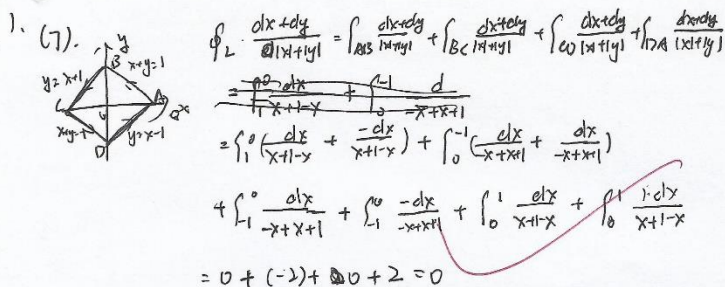 1. (7). y B x+y=1 y=x+1 C A x x+y=-1 D y=x-1
∮_L · \frac{dx+dy}{|x|+|y|} = ∫_{AB} \frac{dx+dy}{|x|+|y|} + ∫_{BC} \frac{dx+dy}{|x|+|y|} + ∫_{CD} \frac{dx+dy}{|x|+|y|} + ∫_{DA} \frac{dx+dy}{|x|+|y|}
= ∫_1^0 \frac{dx}{x+1-x} + ∫_0^{-1} \frac{d}{-x+x+1}
= ∫_1^0 (\frac{dx}{x+1-x} + \frac{-dx}{x+1-x}) + ∫_0^{-1} (\frac{dx}{-x+x+1} + \frac{dx}{-x+x+1})
+ ∫_{-1}^0 \frac{dx}{-x+x+1} + ∫_{-1}^0 \frac{-dx}{-x+x+1} + ∫_0^1 \frac{dx}{x+1-x} + ∫_0^1 \frac{1·dx}{x+1-x}
= 0 + (-2) + 0 + 2 = 0